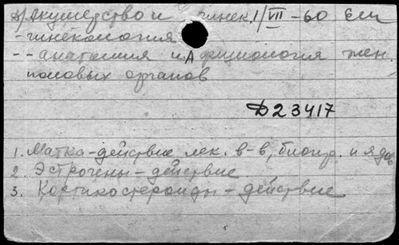 Акушерство и гинек. 1/VII-60 Ем
-гинекология
-- анатомия и физиология жен.
половых органов
Д23417
1. Матка-действие лек. в-в, биопр. и ядов
2. Эстрогены-действие
3. Кортикостероиды-действие